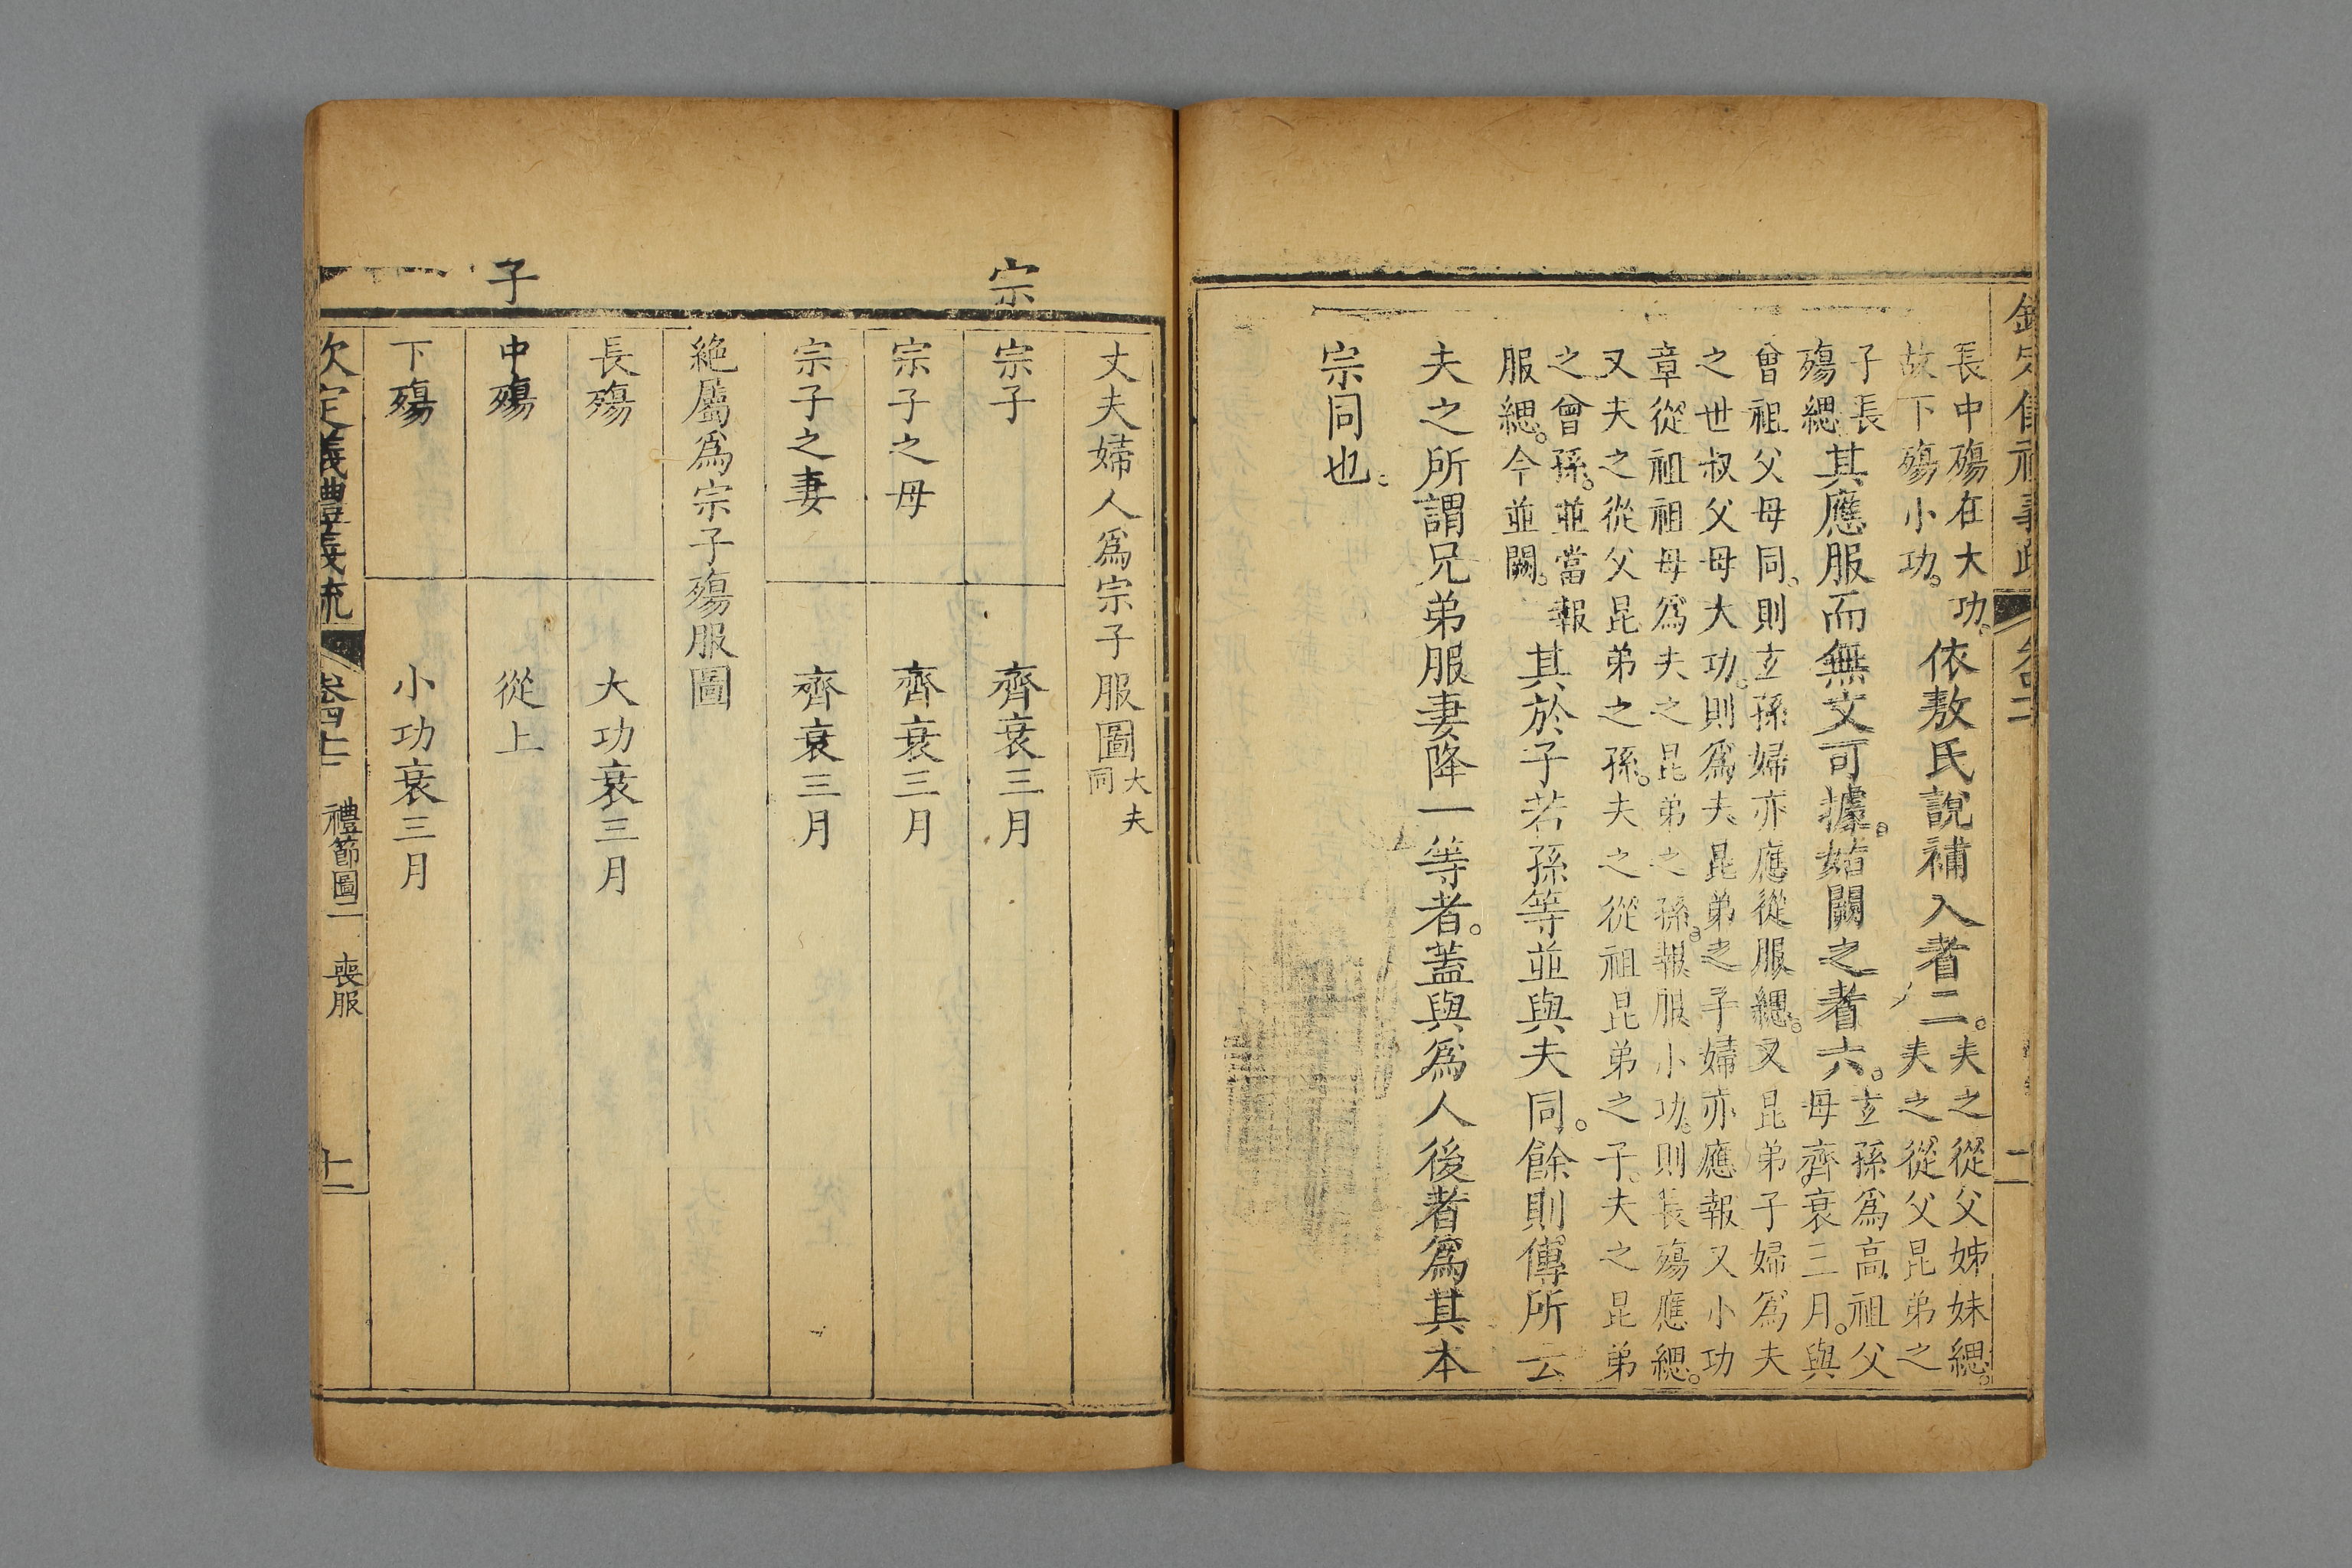 長中殤在大功。
故下殤小功。
依敖氏說補入者二。
夫之從父姊妹緦。
夫之從父昆弟之
子長
殤緦
其應服而無文可據。姑闕之者六。
玄孫爲高祖父
母齊衰三月。與
曾祖父母同、則玄孫婦亦應從服緦。又昆弟子婦爲夫
之世叔父母大功。則爲夫昆弟之子婦亦應報又小功
章從祖祖母爲夫之昆弟之孫。報服小功。則長殤應緦。
又夫之從父昆弟之孫。夫之從祖昆弟之子。夫之昆弟
之曾孫。並當報
服緦。今並闕。
其於子若孫等並與夫同。餘則傳所云
夫之所謂兄弟服妻降一等者。蓋與爲人後者爲其本
宗同也。
宗
子
丈夫婦人爲宗子服圖
大夫
同
宗子
齊衰三月
宗子之母
齊衰三月
宗子之妻
齊衰三月
絶屬爲宗子殤服圖
長殤
大功衰三月
中殤
從上
下殤
小功衰三月
欽定儀禮義疏 卷四十二 禮節圖二 喪服 十一